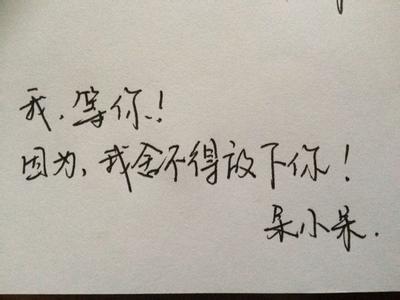 我,等你!
因为,我舍不得放下你!
呆小呆.